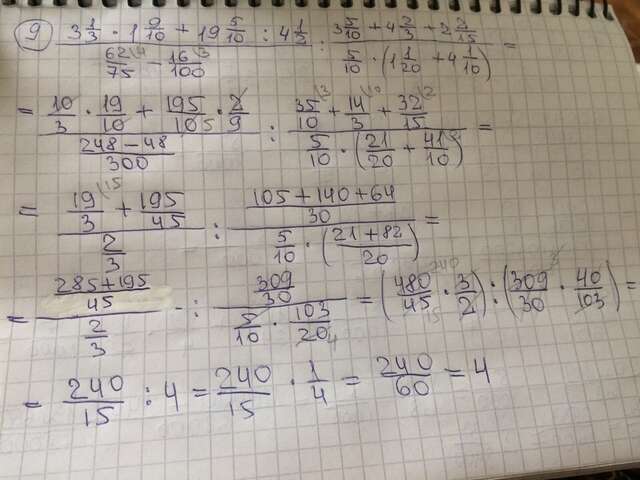 9) (3 1/3 · 1 9/10 + 19 5/10 : 4 1/2) / (62/75 \4 − 16/100 \3) : (3 5/10 + 4 2/3 + 2 2/15) / (5/10 · (1 1/20 + 4 1/10)) =
= (10/3 · 19/10 + 195/105 · 2/9) / ((248 − 48)/300) : (35/10 \3 + 14/3 \10 + 32/15 \2) / (5/10 · (21/20 + 41/10)) =
= (19/3 \15 + 195/45) / (2/3) : ((105 + 140 + 64)/30) / (5/10 · ((21 + 82)/20)) =
= ((285 + 195)/45) / (2/3) : (309/30) / (5/10 · 103/20 4) = (480/45 · 3/2) : (309/30 · 40/103) =
= 240/15 : 4 = 240/15 · 1/4 = 240/60 = 4